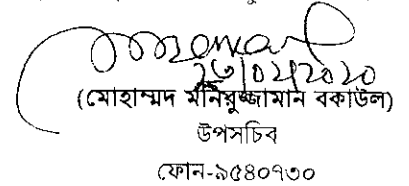 ২৬/০২/২০২০
(মোহাম্মদ মনিরুজ্জামান বকাউল)
উপসচিব
ফোন-৯৫৪০৭৩০